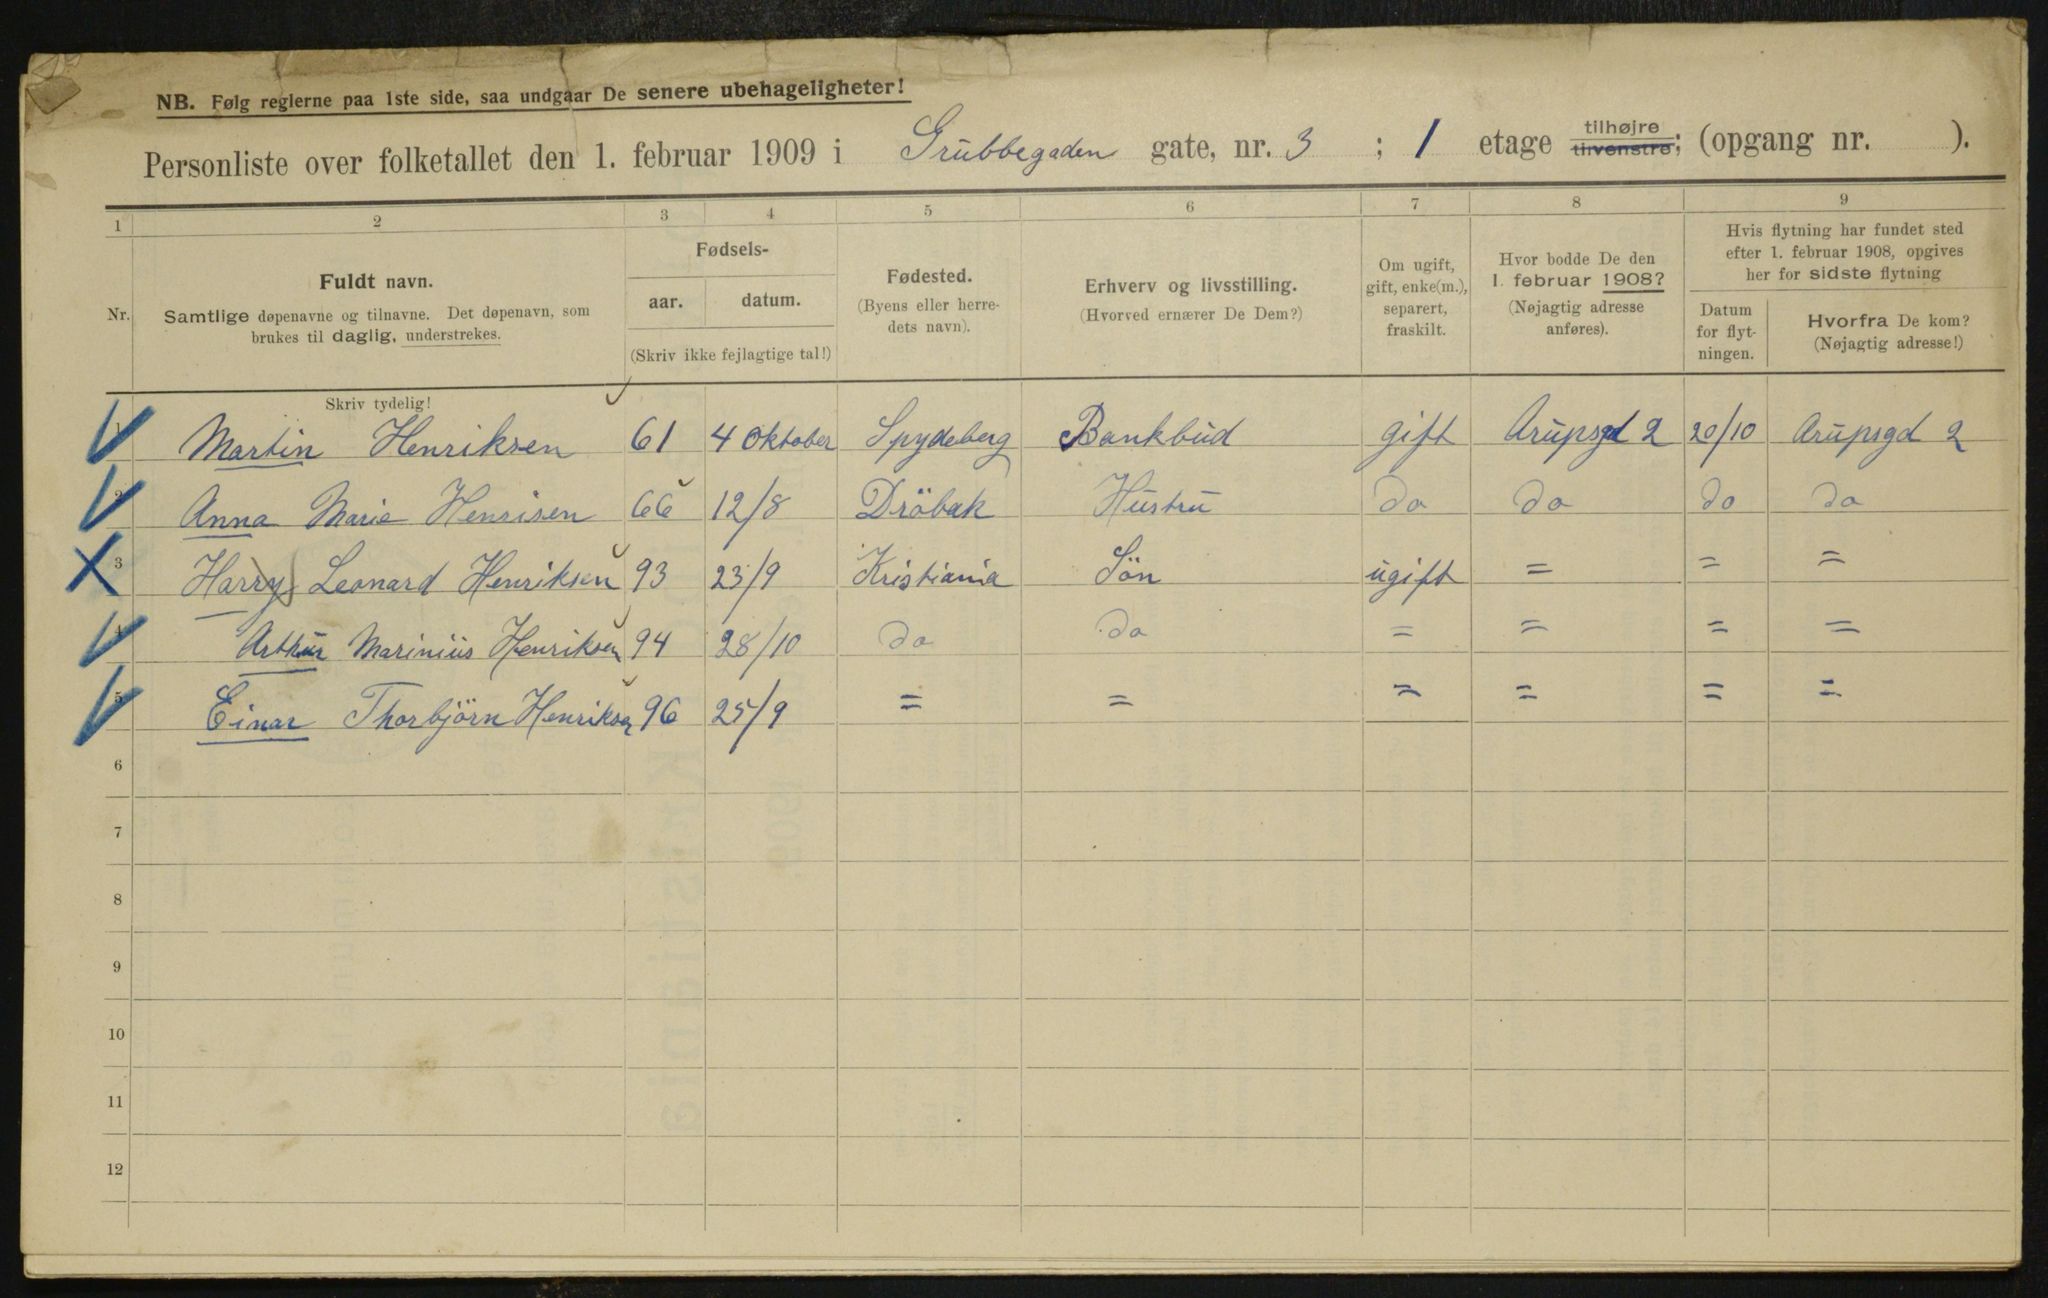 NB. Følg reglerne paa 1ste side, saa undgaar De senere ubehageligheter!
Personliste over folketallet den 1. februar 1909 i Grubbegaden gate, nr. 3 ; 1 etage tilhøjre tilvenstre; (opgang nr. ).
1 2 3 4 5 6 7 8 9
Nr.
Fuldt navn.
Samtlige døpenavne og tilnavne. Det døpenavn, som
brukes til daglig, understrekes.
Skriv tydelig!
Fødsels-
aar. datum.
(Skriv ikke fejlagtige tal!)
Fødested.
(Byens eller herre-
dets navn).
Erhverv og livsstilling.
(Hvorved ernærer De Dem?)
Om ugift,
gift, enke(m.),
separert,
fraskilt.
Hvor bodde De den
1. februar 1908?
(Nøjagtig adresse
anføres).
Hvis flytning har fundet sted
efter 1. februar 1908, opgives
her for sidste flytning
Datum
for flyt-
ningen.
Hvorfra De kom?
(Nøjagtig adresse!)
1 Martin Henriksen 61 4 Oktober Spydeberg Bankbud gift Arupsgd 2 20/10 Arupsgd 2
2 Anna Marie Henrisen 66 12/8 Dröbak Hustru do do do do
3 Harry Leonard Henriksen 93 23/9 Kristiania Sön ugift = = =
4 Arthur Marinius Henriksen 94 28/10 do do = = = =
5 Einar Thorbjörn Henriksen 96 25/9 = = = = = =
6
7
8
9
10
11
12